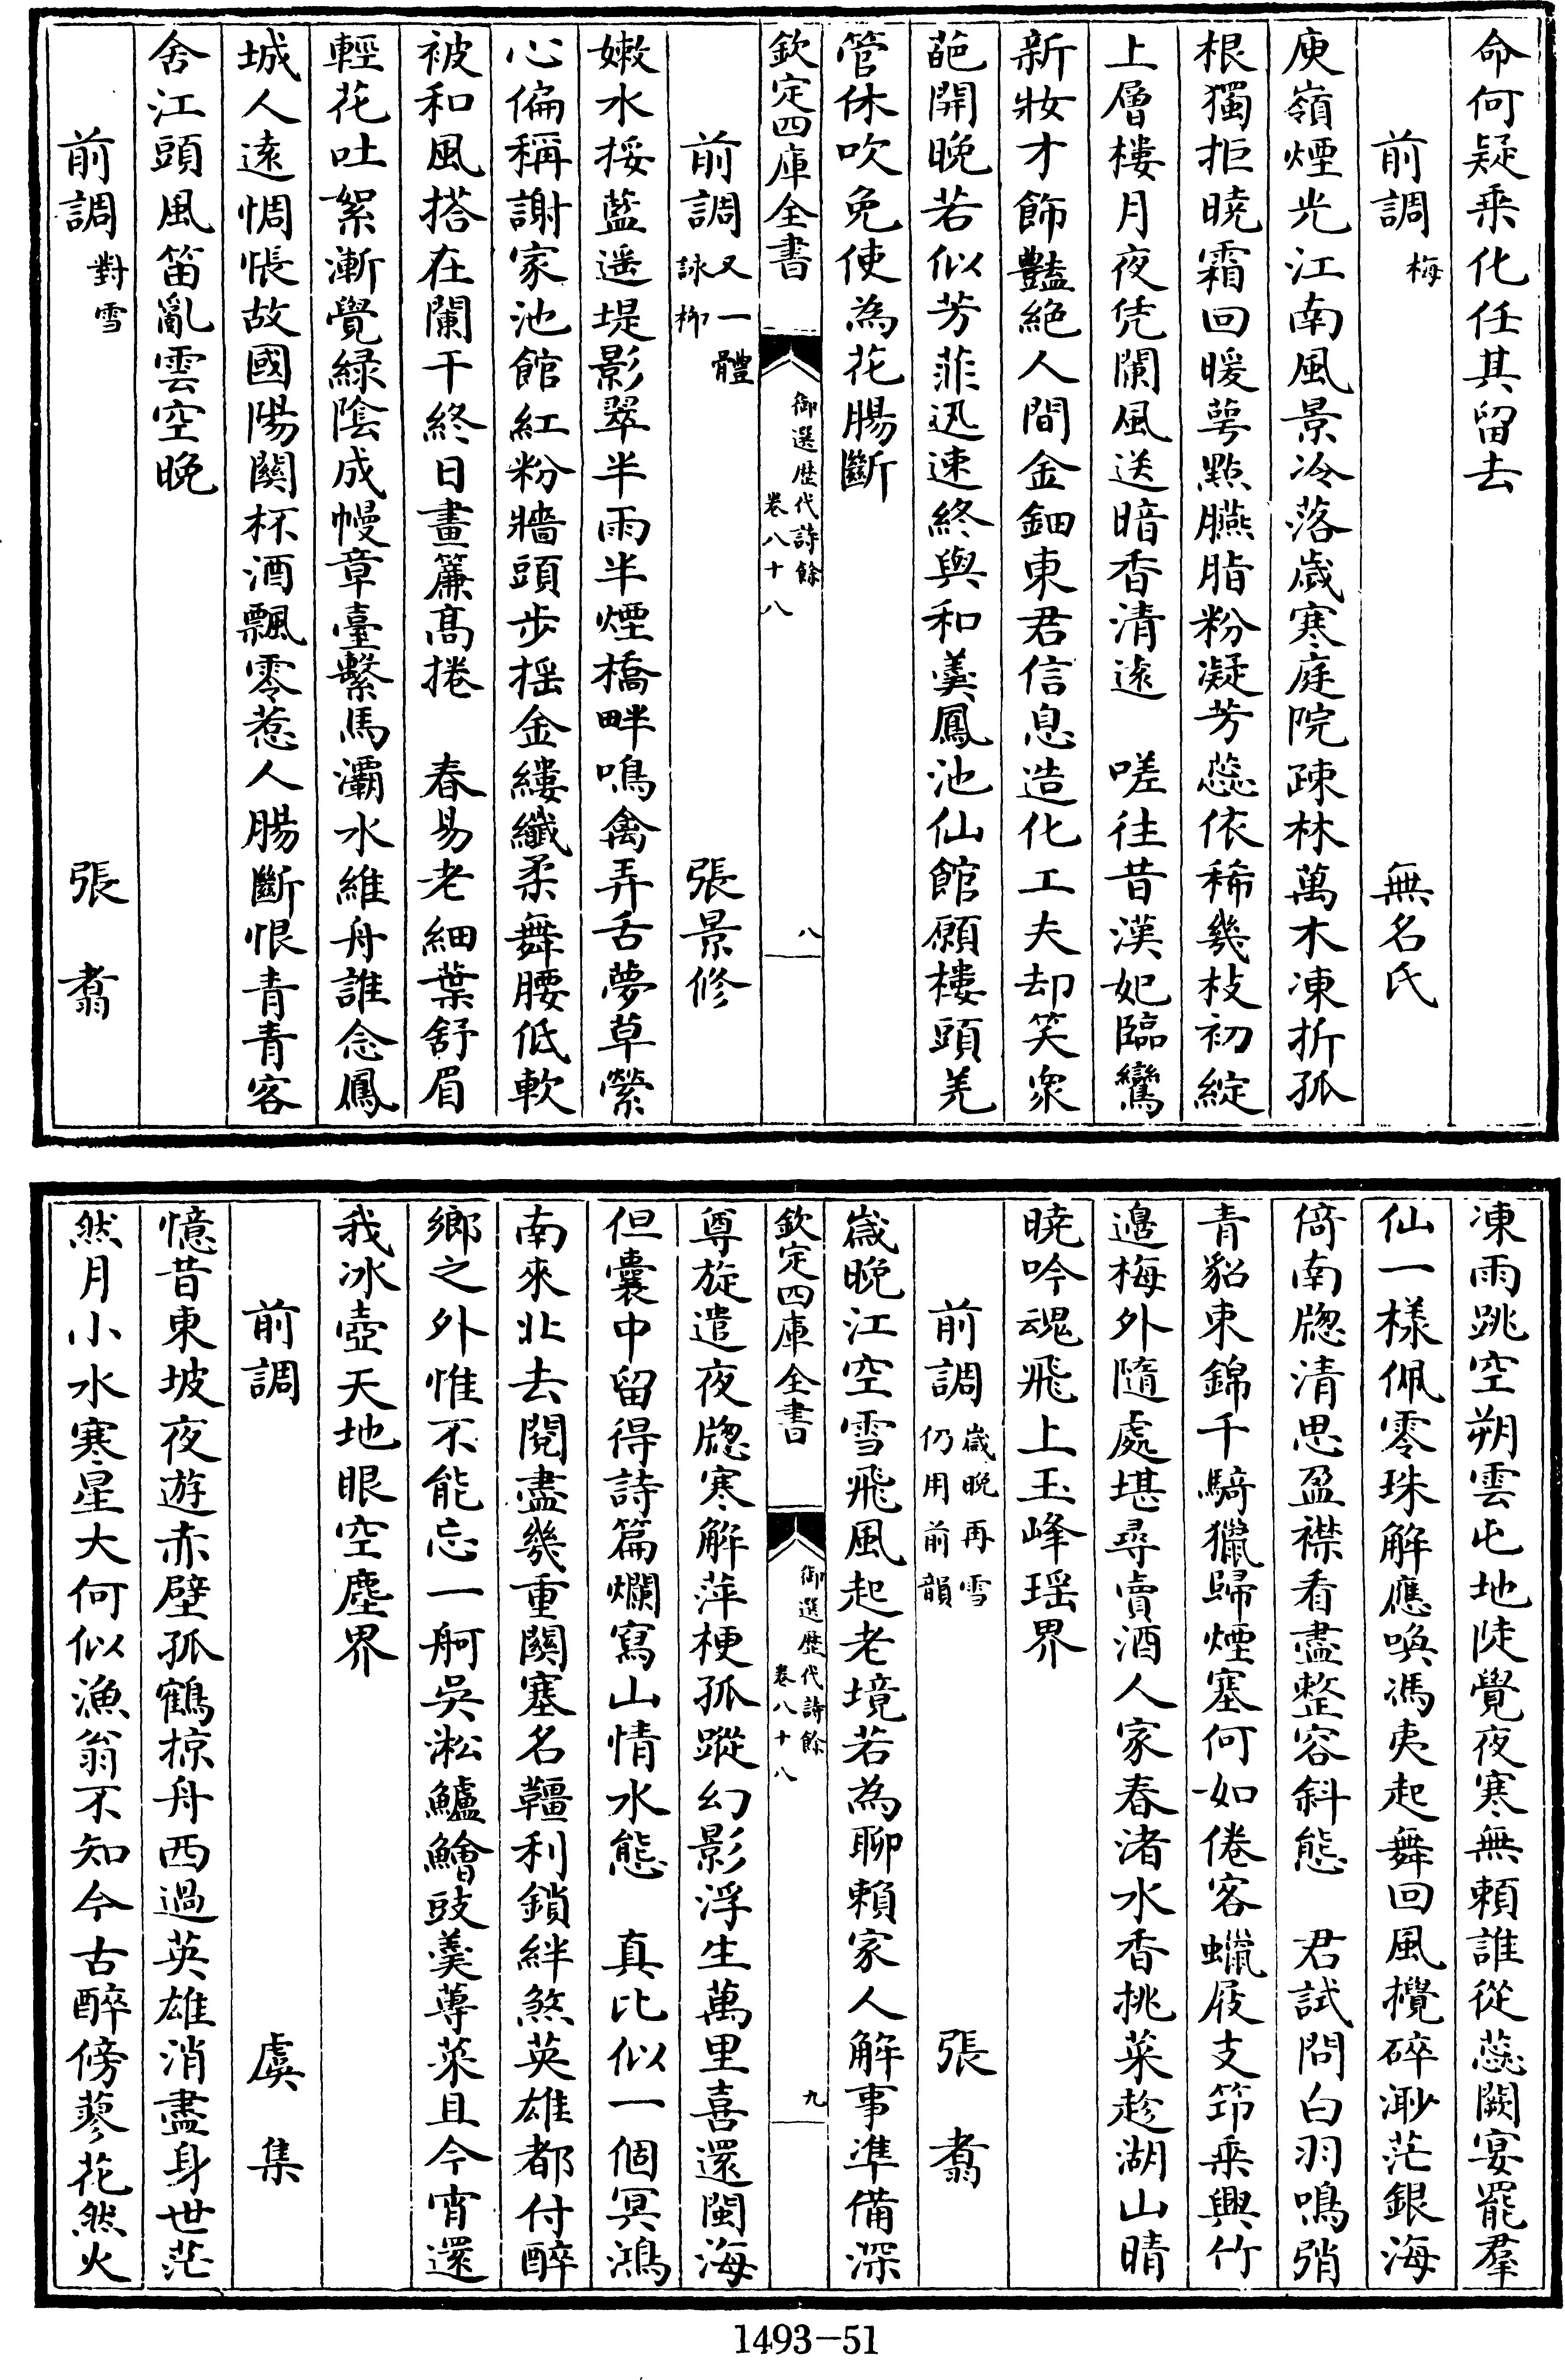 命何疑乘化任其留去
前調梅　無名氏
庾嶺煙光江南風景冷落歲寒庭院疎林萬木凍折孤
根獨拒曉霜回暖萼㸃臙脂粉凝芳蕊依稀幾枝初綻
上層樓月夜凭闌風送暗香清遠　嗟往昔漢妃臨鸞
新妝才飾豔絕人間金鈿東君信息造化工夫却笑衆
葩開晚若似芳菲迅速終與和羹鳳池仙館願樓頭羌
管休吹免使為花腸斷
欽定四庫全書　御選歷代詩餘　卷八十八　八
前調又一體　詠栁　張景修
嫩水挼藍遥堤影翠半雨半煙橋畔鳴禽弄舌夢草縈
心偏稱謝家池館紅粉牆頭步摇金縷纖柔舞腰低軟
被和風搭在闌干終日畫簾髙捲　春易老細葉舒眉
輕花吐絮漸覺緑陰成幔章臺繫馬灞水維舟誰念鳳
城人逺惆悵故國陽關杯酒飄零惹人腸斷恨青青客
舍江頭風笛亂雲空晚
前調對雪　張翥
凍雨跳空朔雲屯地陡覺夜寒無賴誰從蕊闕宴罷羣
仙一樣佩零珠解應喚馮夷起舞回風攪碎渺茫銀海
倚南牕清思盈襟看盡整容斜態　君試問白羽鳴弰
青貂束錦千騎獵歸煙塞何如倦客蠟屐支筇乘興竹
邉梅外隨處堪尋賣酒人家春渚水香挑菜趁湖山晴
曉吟魂飛上玉峰瑶界
前調歲晚再雪仍用前韻　張翥
歲晚江空雪飛風起老境若為聊賴家人解事準備深
欽定四庫全書　御選歷代詩餘　卷八十八　九
尊旋遣夜牕寒解萍梗孤蹤幻影浮生萬里喜還閩海
但囊中留得詩篇爛寫山情水態　真比似一個冥鴻
南來北去閱盡幾重關塞名韁利鎖絆煞英雄都付醉
鄉之外惟不能忘一舸吳淞鱸鱠豉羹蓴菜且今宵還
我冰壺天地眼空塵界
前調　虞集
憶昔東坡夜遊赤壁孤鶴掠舟西過英雄消盡身世茫
然月小水寒星大何似漁翁不知今古醉傍蓼花然火
1493-51